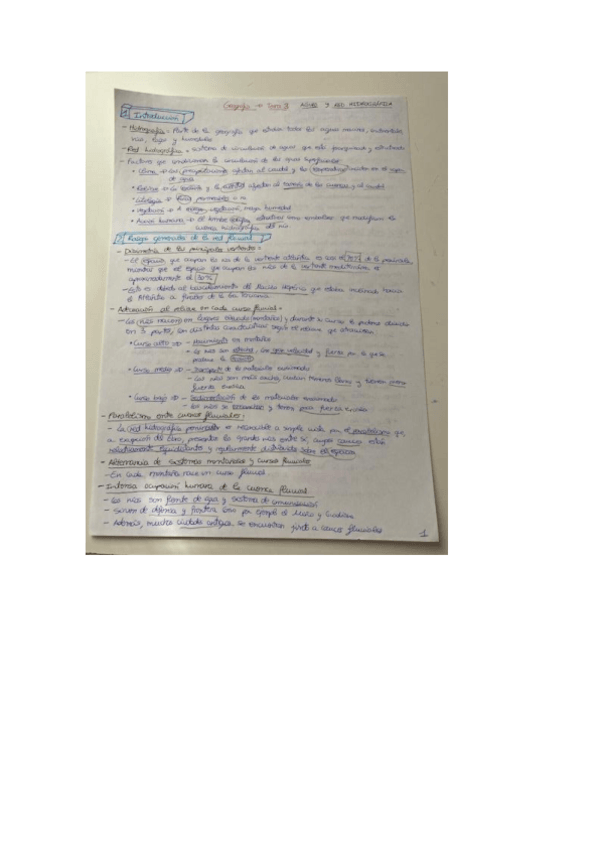 Geografía → Tema 3 AGUAS Y RED HIDROGRÁFICA
1 Introducción
- Hidrografía = Parte de la geografía que estudia todas las aguas marinas,
ríos, lagos y humedales
- Red hidrográfica = sistema de circulación de aguas que está jerarquizado y
- Factores que condicionan la circulación de las aguas superficiales
• Clima → las precipitaciones afectan al caudal y la
de agua
• Relieve → la y la afectan al de las cuencas y al caudal
• Litología → permeables o no
• Vegetación → A mayor vegetación, mayor humedad
• Acción humana → El hombre que modifican la
cuenca hidrográfica del río
2 Rasgos generales de la red fluvial
- Disimetría de las principales vertientes =
- El espacio que ocupan los ríos de la vertiente atlántica es casi el 70% de la península
mientras que el espacio que ocupan los ríos de la vertiente mediterránea es
aproximadamente el 30%
- Esto es debido al basculamiento del Macizo Hespérico que estaba inclinado hacia
el Atlántico a finales de la Era Terciaria
- Adecuación al relieve en cada curso fluvial =
- Los ríos nacen en lugares elevados (montañas) y durante su curso lo podemos dividir
en 3 partes, con distintas características según el relieve que atraviesan
• Curso alto → - Nacimiento en montañas
- los ríos son , gran velocidad y fuerza por lo que se
produce la
• Curso medio → - Transporte de los materiales
- Los ríos son más anchos, llevan menos y tienen
fuerza erosiva
• Curso bajo → - Sedimentación de los materiales
- los ríos se ensanchan y tienen poca fuerza erosiva
- Paralelismo entre cursos fluviales:
- La red hidrográfica peninsular es reconocible a simple vista por el paralelismo que
a excepción del Ebro, presentan los grandes ríos entre sí, cuyos cauces están
relativamente equidistantes y regularmente distribuidos sobre el espacio
- Alternancia de sistemas montañosos y cursos fluviales
- En cada montaña nace un curso fluvial
- Intensa ocupación humana de la cuenca fluvial
- Los ríos son fuente de agua y sistema de comunicación
- Sirven de defensa y frontera como por ejemplo el Miño y Guadiana
- Además, muchas ciudades antiguas se encuentran junto a tramos fluviales
1